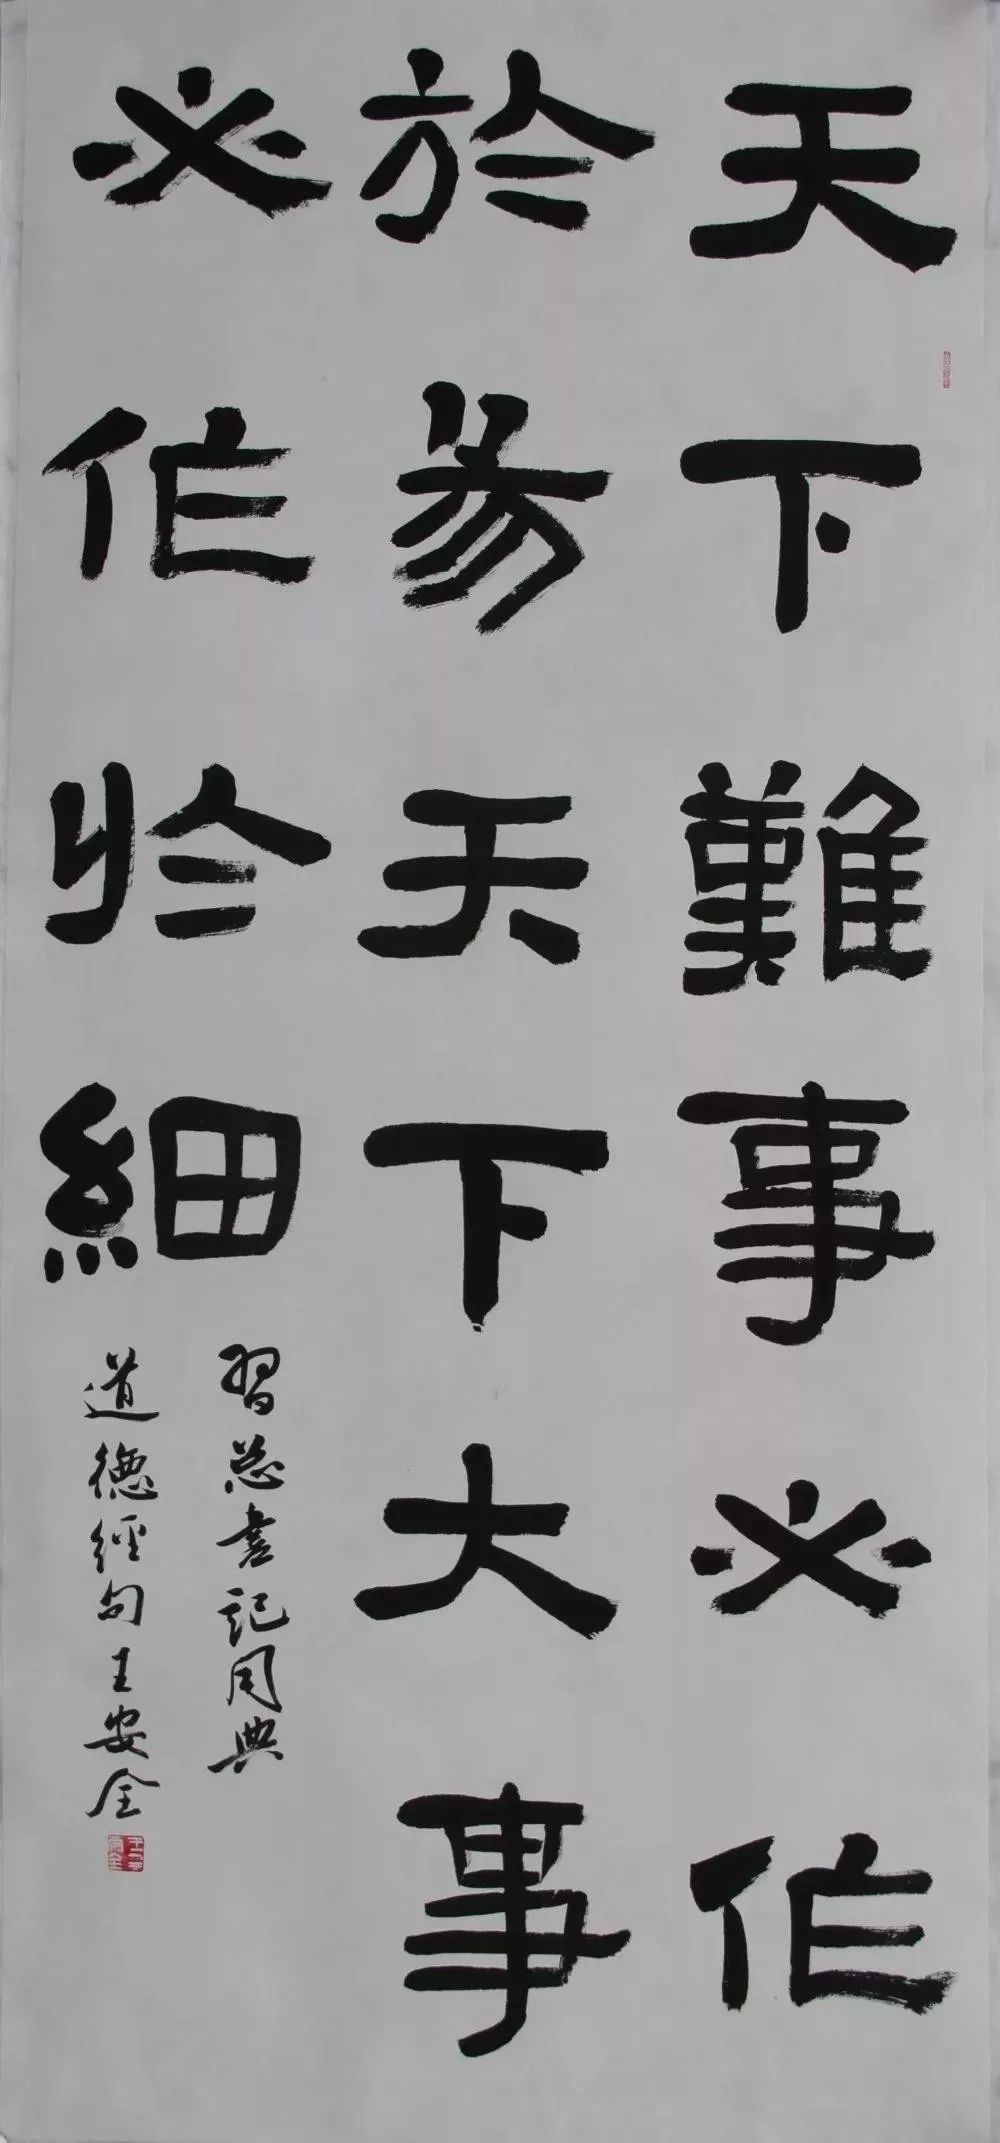 天下難事必作
於易天下大事
必作於細
習總書記用典
道德經句王安全